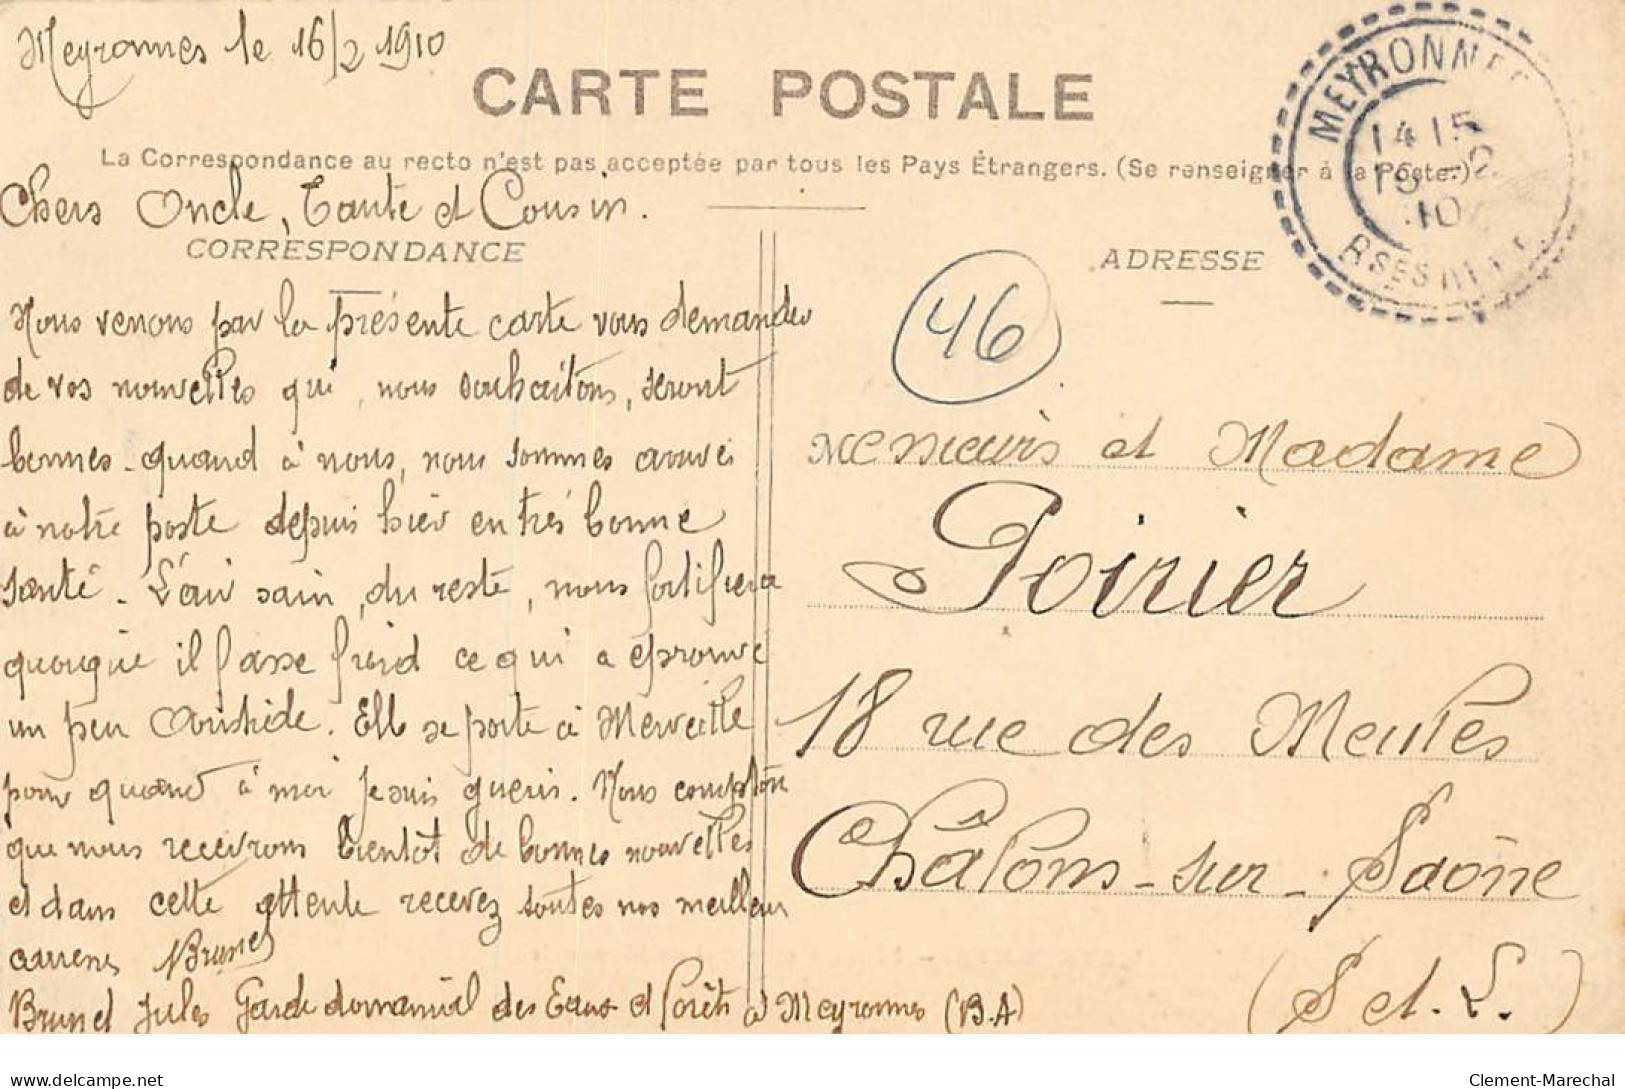 Meyronnes le 16/2 1910
CARTE POSTALE
La Correspondance au recto n'est pas acceptée par tous les Pays Étrangers. (Se renseigner à la Poste.)
MEYRONNES
14 15
16 -2
10
Bses ALPES
Chers Oncle, Tante et Cousin.
CORRESPONDANCE
Nous venons par la présente carte vous demander
de vos nouvelles qui, nous souhaitons, seront
bonnes. quand à nous, nous sommes arrivés
à notre poste depuis hier en très bonne
santé. L'air sain, du reste, nous fortifiera
quoique il fasse froid ce qui a éprouvé
un peu Aristide. Elle se porte à Merveille
pour quand à moi je suis guéris. Nous comptons
que nous recevrons bientôt de bonnes nouvelles
et dans cette attente recevez toutes nos meilleurs
Brunel
Brunel Jules Garde domanial des Eaux et forêts à Meyronnes (B.A)
ADRESSE
46
Messieurs et Madame
Poirier
18 rue des Meules
Châlons-sur-Saône
(S et. L.)
delcampe.net
Clement-Marechal